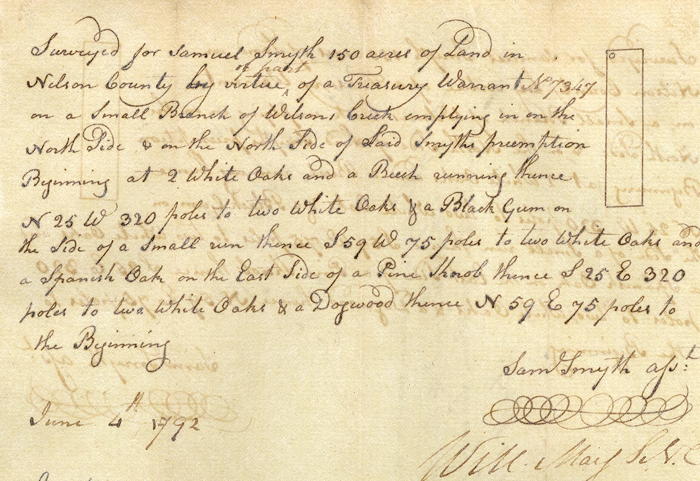 Surveyed for Samuel Smyth 150 acres of Land in
Nelson County by virtue of part of a Treasury Warrant No 7347
on a Small Branch of Wilsons Creek emptying in on the
North Side & on the North Side of Said Smyths preemption
Beginning at 2 White Oaks and a Beech running thence
N 25 W 320 poles to two White Oaks & a Black Gum on
the Side of a Small run thence S 59 W 75 poles to two White Oaks and
a Spanish Oak on the East Side of a Pine Knob thence S 25 E 320
poles to two White Oaks & a Dogwood thence N 59 E 75 poles to
the Beginning
Saml Smyth asst
June 4th 1792
Will May S. N. C